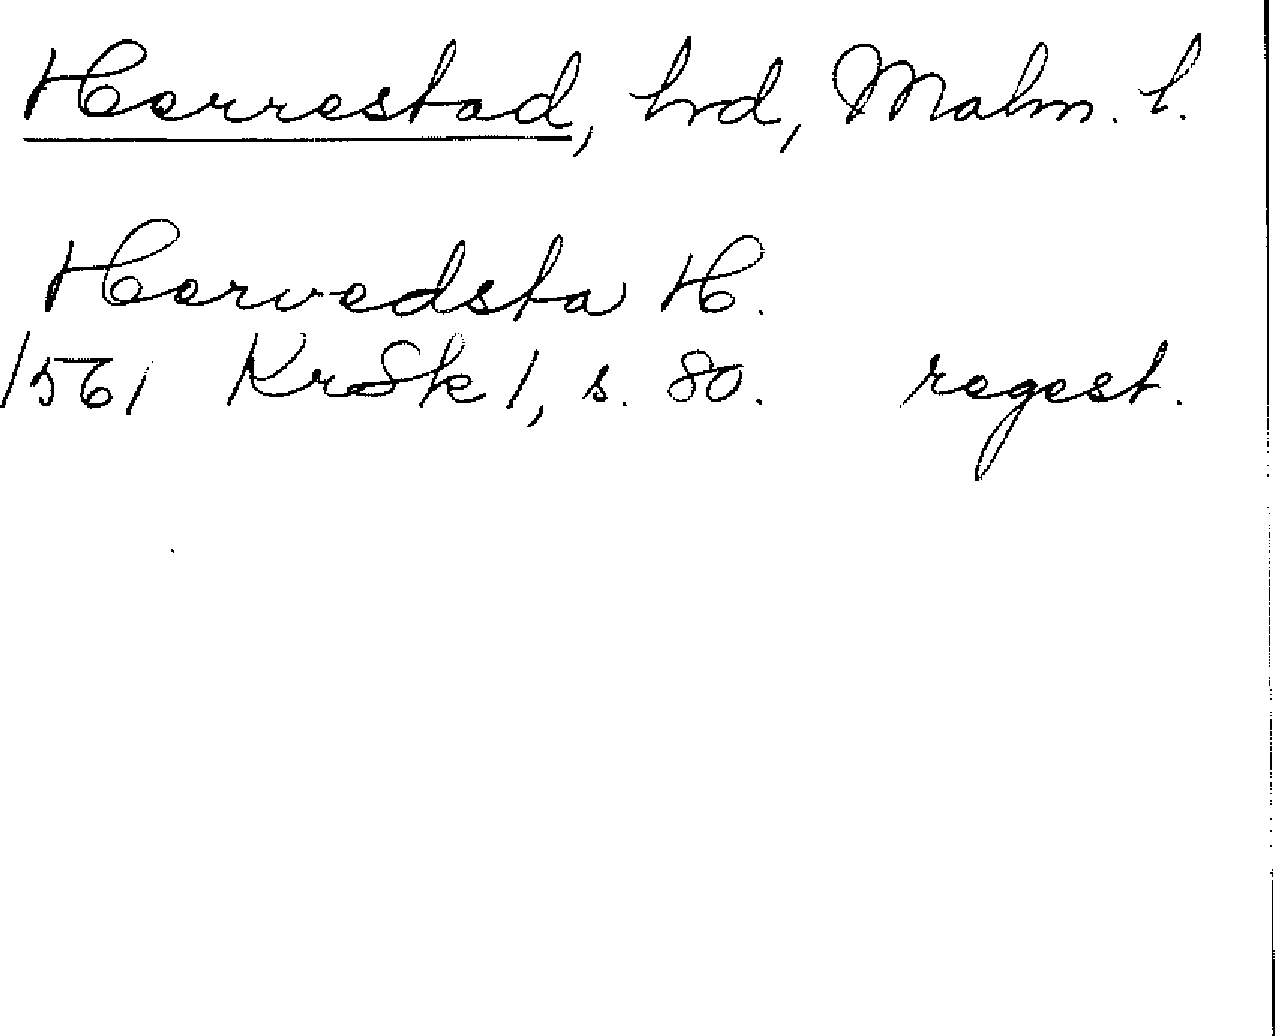 Herrestad, hrd, Malm. l.
Hervedsta H.
1561 KrSk 1, s. 80. regest.